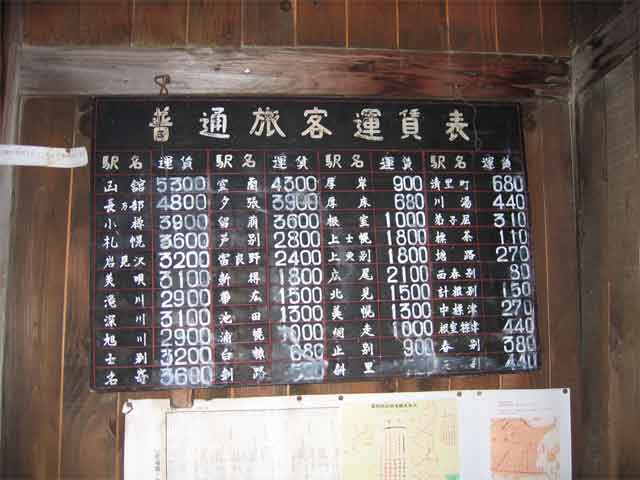 普通旅客運賃表
駅名 運賃 駅名 運賃 駅名 運賃 駅名 運賃
函館 5300 室蘭 4300 厚岸 900 清里町 680
長万部 4800 夕張 3900 厚床 680 川湯 440
小樽 3900 留萌 3600 根室 1000 弟子屈 310
札幌 3600 芦別 2800 上士幌 1800 標茶 110
岩見沢 3200 富良野 2400 上更別 1800 塘路 270
美唄 3100 新得 1800 広尾 2100 西春別 80
滝川 2900 帯広 1500 北見 1500 計根別 150
深川 3100 池田 1300 美幌 1300 中標津 270
旭川 2900 浦幌 1000 網走 1000 根室標津 440
士別 3200 白糠 680 止別 900 春別 380
名寄 3600 釧路 斜里 440